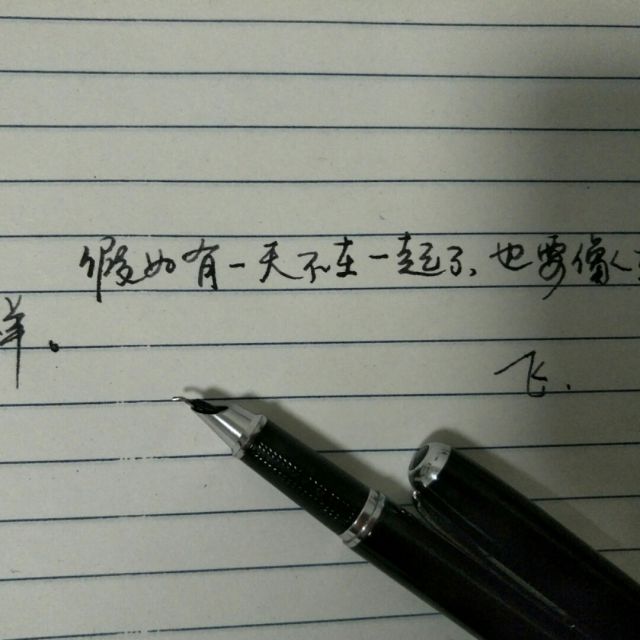 假如有一天不在一起了、也要像
样。
飞.